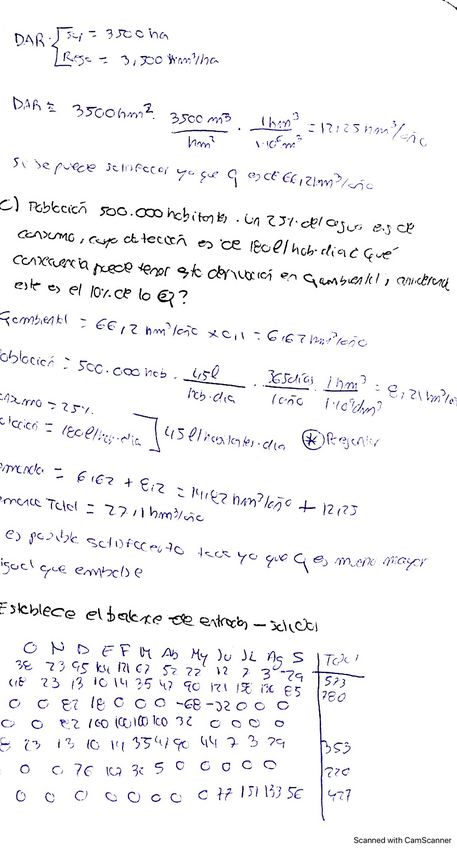 DAR Sup = 3500 ha
Riego = 3,500 m³/ha
DAR = 3500 hm² · 3500 m³ / hm² · 1 hm³ / 1·10⁶ m³ = 12,25 hm³/año
Si se puede satisfacer ya que Q es de 66,2 hm³/año
c) Población 500.000 habitantes. Un 25% del agua es de
consumo, cuya dotación es de 180 l/hab·dia ¿Qué
consecuencia puede tener esta derivación en Qambiental,
este es el 10% de lo Q?
Qambiental = 66,2 hm³/año × 0,1 = 6,62 hm³/año
oblación = 500.000 hab · 45 l / hab·dia · 365 dias / 1 año · 1 hm³ / 1·10⁹ dm³ = 8,21 hm³/
nsumo = 25%
tación = 180 l/hab·dia ] 45 l/habitantes·dia * Preguntar
manda = 6,62 + 8,2 = 14,82 hm³/año + 12,25
manda Total = 27,1 hm³/año
es posible satisfacer to ya que Q es mucho mayor
igual que embalse
Establece el balance de entrada - salida
O N D E F M Ab My Ju JL Ag S Total
38 23 95 104 121 67 52 22 12 7 3 29 573
48 23 13 10 14 35 47 90 121 158 136 85 780
0 0 82 18 0 0 0 -68 -32 0 0 0
0 0 82 100 100 100 100 32 0 0 0 0
8 23 13 10 14 35 47 90 44 7 3 29 353
0 0 76 36 5 0 0 0 0 0 220
0 0 0 0 0 0 0 0 77 151 133 56 427
Scanned with CamScanner